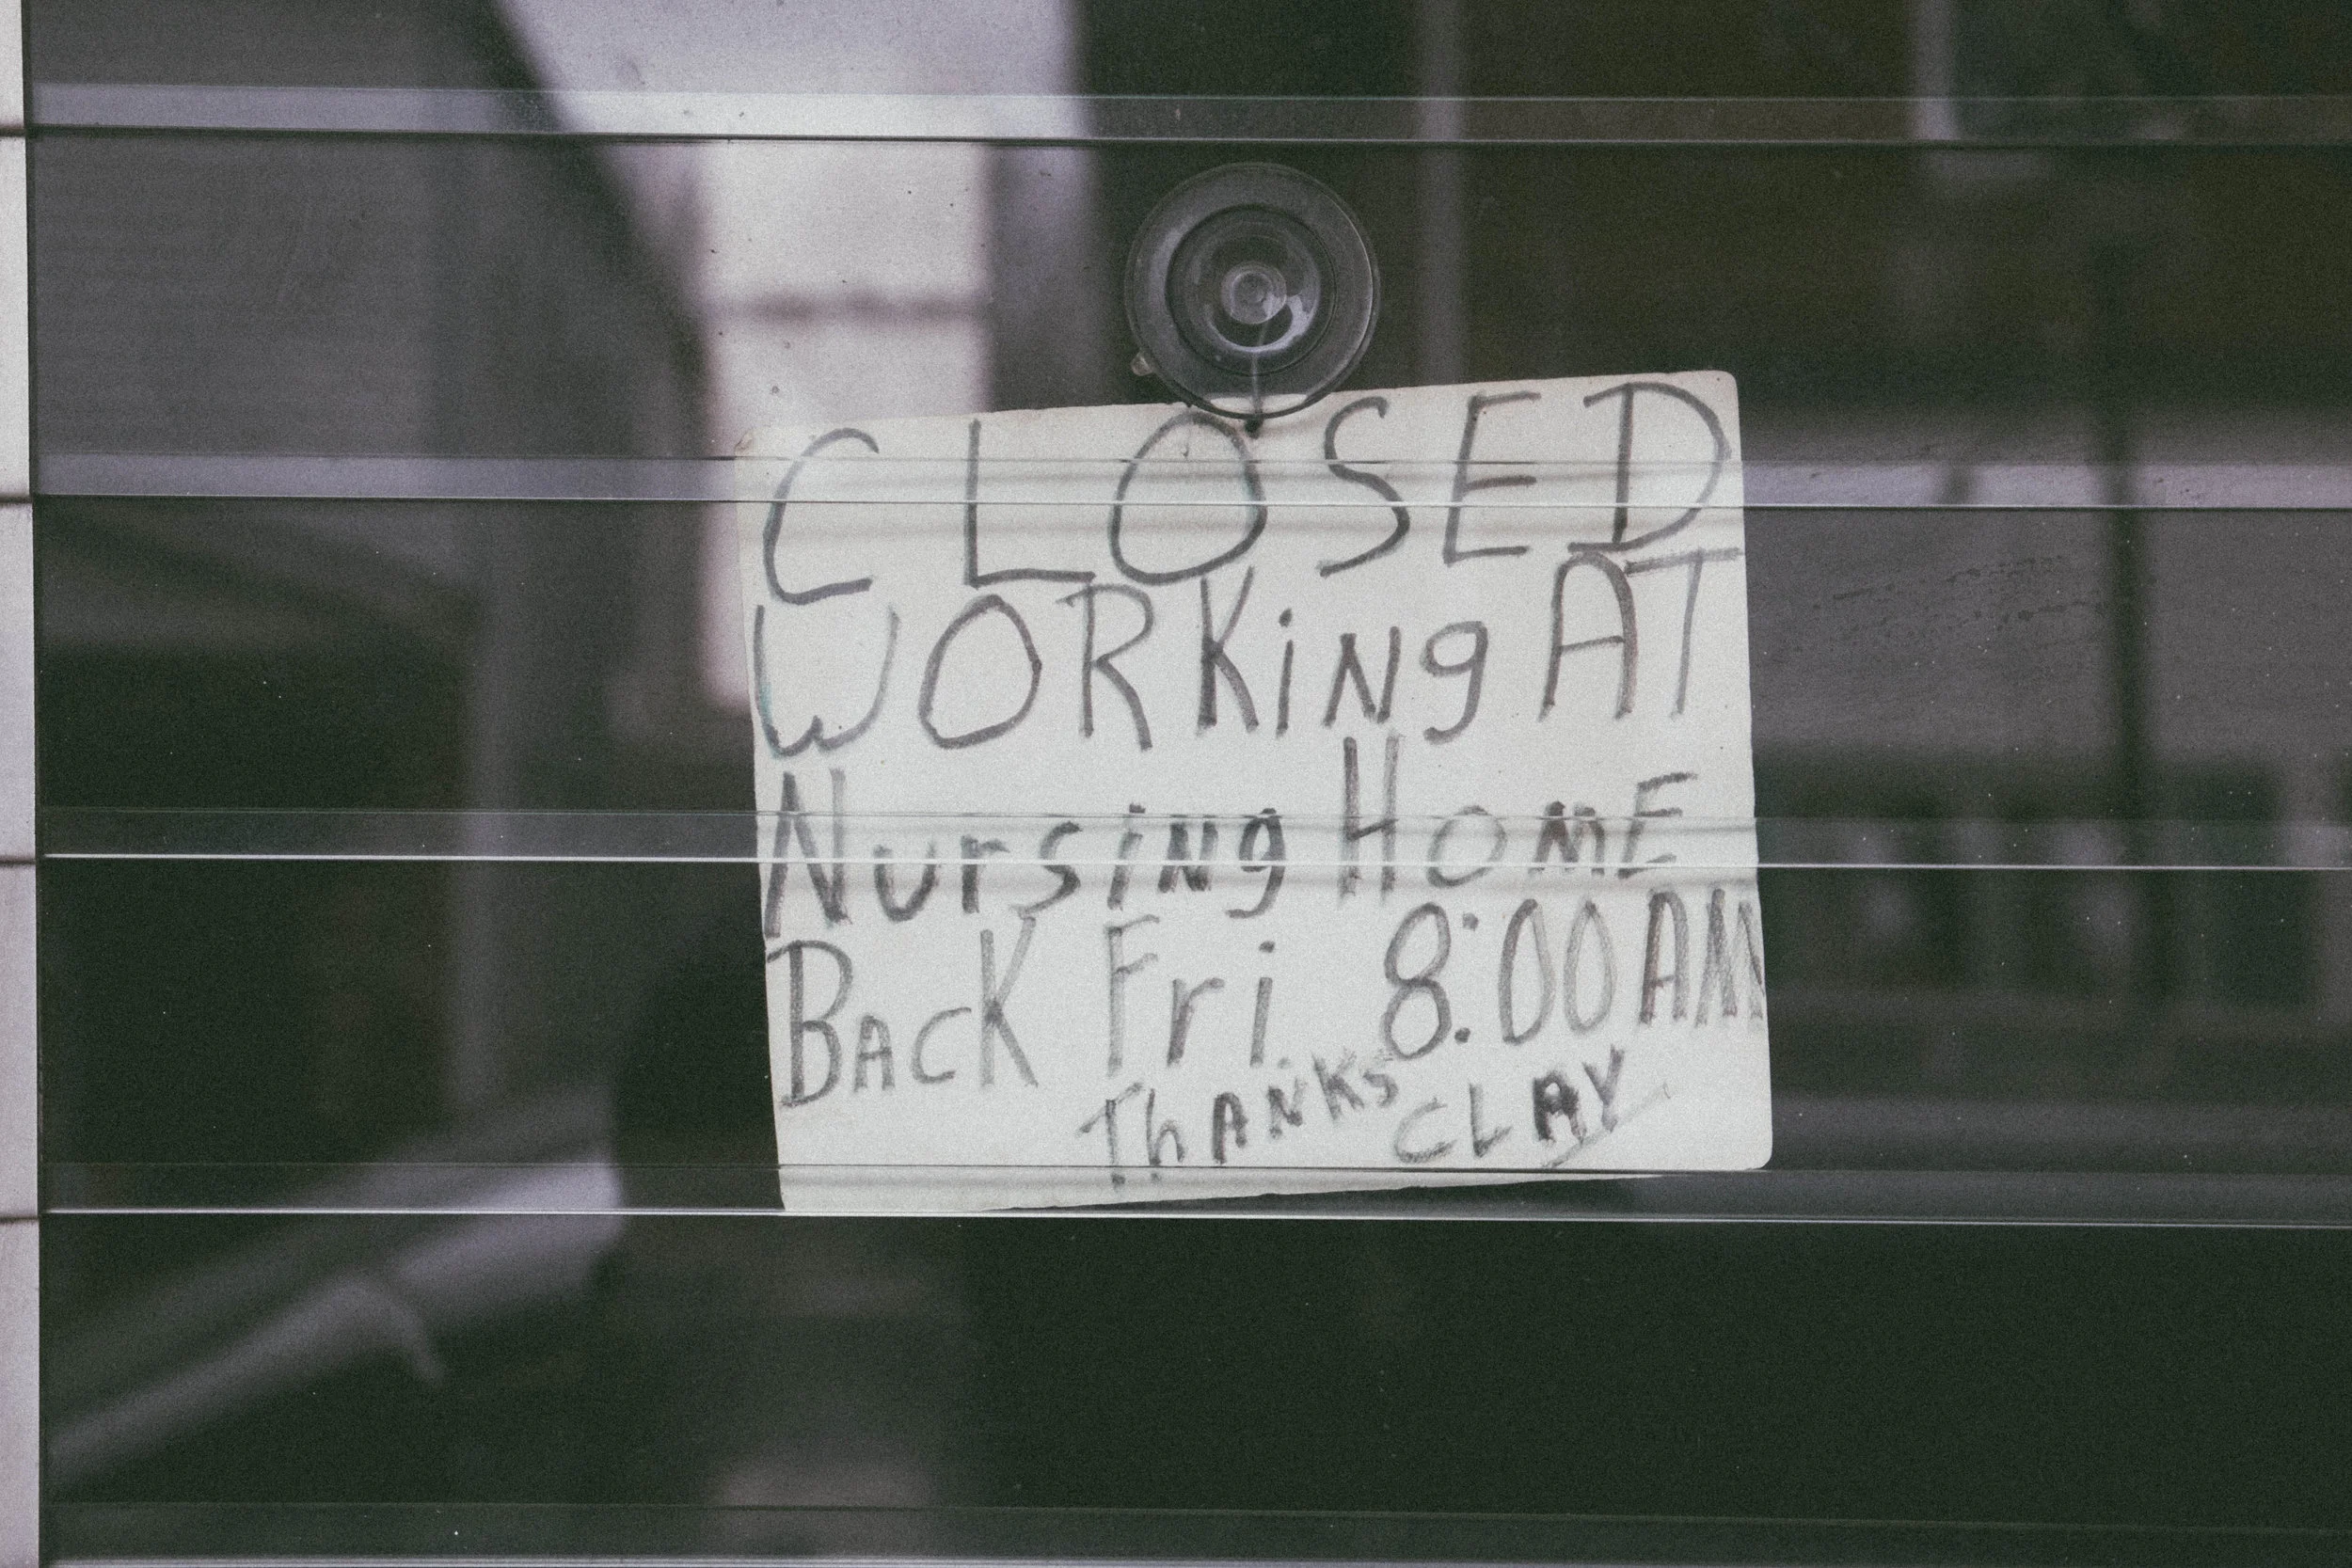 CLOSED
WORKiNg AT
NursiNg HomE
BAcK Fri. 8:00AM
ThANKS CLAY